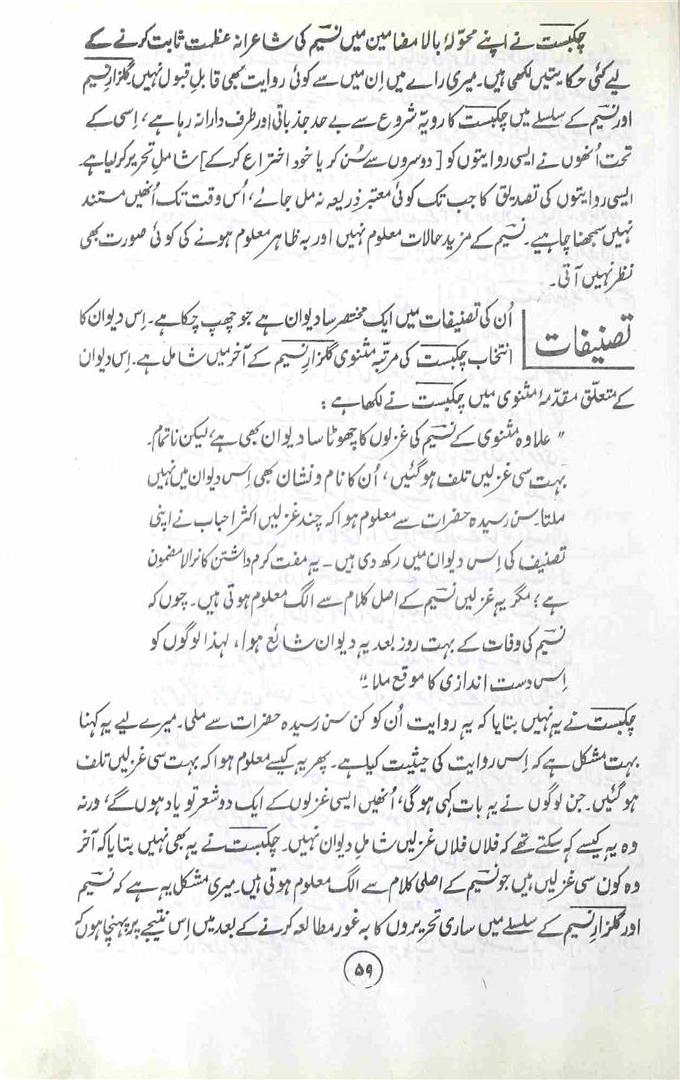 چکبست نے اپنے محوّلۂ بالا مضامین میں نسیم کی شاعرانہ عظمت ثابت کرنے کے
لیے کئی حکایتیں لکھی ہیں۔ میری راے میں اِن میں سے کوئی روایت بھی قابلِ قبول نہیں۔ گلزارِ نسیم
اور نسیم کے سلسلے میں چکبست کا رویّہ شروع سے بے حد جذباتی اور طرف دارانہ رہا ہے، اِسی کے
تحت اُنھوں نے ایسی روایتوں کو [دوسروں سے سُن کر یا خود اختراع کرکے] شاملِ تحریر کرلیا ہے۔
ایسی روایتوں کی تصدیق کا جب تک کوئی معتبر ذریعہ نہ مل جائے، اُس وقت تک اُنھیں مستند
نہیں سمجھنا چاہیے۔ نسیم کے مزید حالات معلوم نہیں اور بہ ظاہر معلوم ہونے کی کوئی صورت بھی
نظر نہیں آتی۔
تصنیفات
اُن کی تصنیفات میں ایک مختصر سا دیوان ہے جو چھپ چکا ہے۔ اِس دیوان کا
انتخاب چکبست کی مرتّبہ مثنوی گلزارِ نسیم کے آخر میں شامل ہے۔ اِس دیوان
کے متعلّق مقدّمۂ مثنوی میں چکبست نے لکھا ہے :
"علاوہ مثنوی کے نسیم کی غزلوں کا چھوٹا سا دیوان بھی ہے، لیکن ناتمام۔
بہت سی غزلیں تلف ہوگئیں، اُن کا نام و نشان بھی اِس دیوان میں نہیں
ملتا۔ سن رسیدہ حضرات سے معلوم ہوا کہ چند غزلیں اکثر احباب نے اپنی
تصنیف کی اِس دیوان میں رکھ دی ہیں۔ یہ مفت کرم داشتن کا نرالا مضمون
ہے؛ مگر یہ غزلیں نسیم کے اصل کلام سے الگ معلوم ہوتی ہیں۔ چوں کہ
نسیم کی وفات کے بہت روز بعد یہ دیوان شائع ہوا، لہٰذا لوگوں کو
اِس دست اندازی کا موقع ملا۔"
چکبست نے یہ نہیں بتایا کہ یہ روایت اُن کو کن سن رسیدہ حضرات سے ملی۔ میرے لیے یہ کہنا
بہت مشکل ہے کہ اِس روایت کی حیثیت کیا ہے۔ پھر یہ کیسے معلوم ہوا کہ بہت سی غزلیں تلف
ہوگئیں۔ جن لوگوں نے یہ بات کہی ہوگی، اُنھیں ایسی غزلوں کے ایک دو شعر تو یاد ہوں گے، ورنہ
وہ یہ کیسے کہہ سکتے تھے کہ فلاں فلاں غزلیں شاملِ دیوان نہیں۔ چکبست نے یہ بھی نہیں بتایا کہ آخر
وہ کون سی غزلیں ہیں جو نسیم کے اصلی کلام سے الگ معلوم ہوتی ہیں۔ میری مشکل یہ ہے کہ نسیم
اور گلزارِ نسیم کے سلسلے میں ساری تحریروں کا بہ غور مطالعہ کرنے کے بعد میں اِس نتیجے پر پہنچا ہوں کہ
۵۹